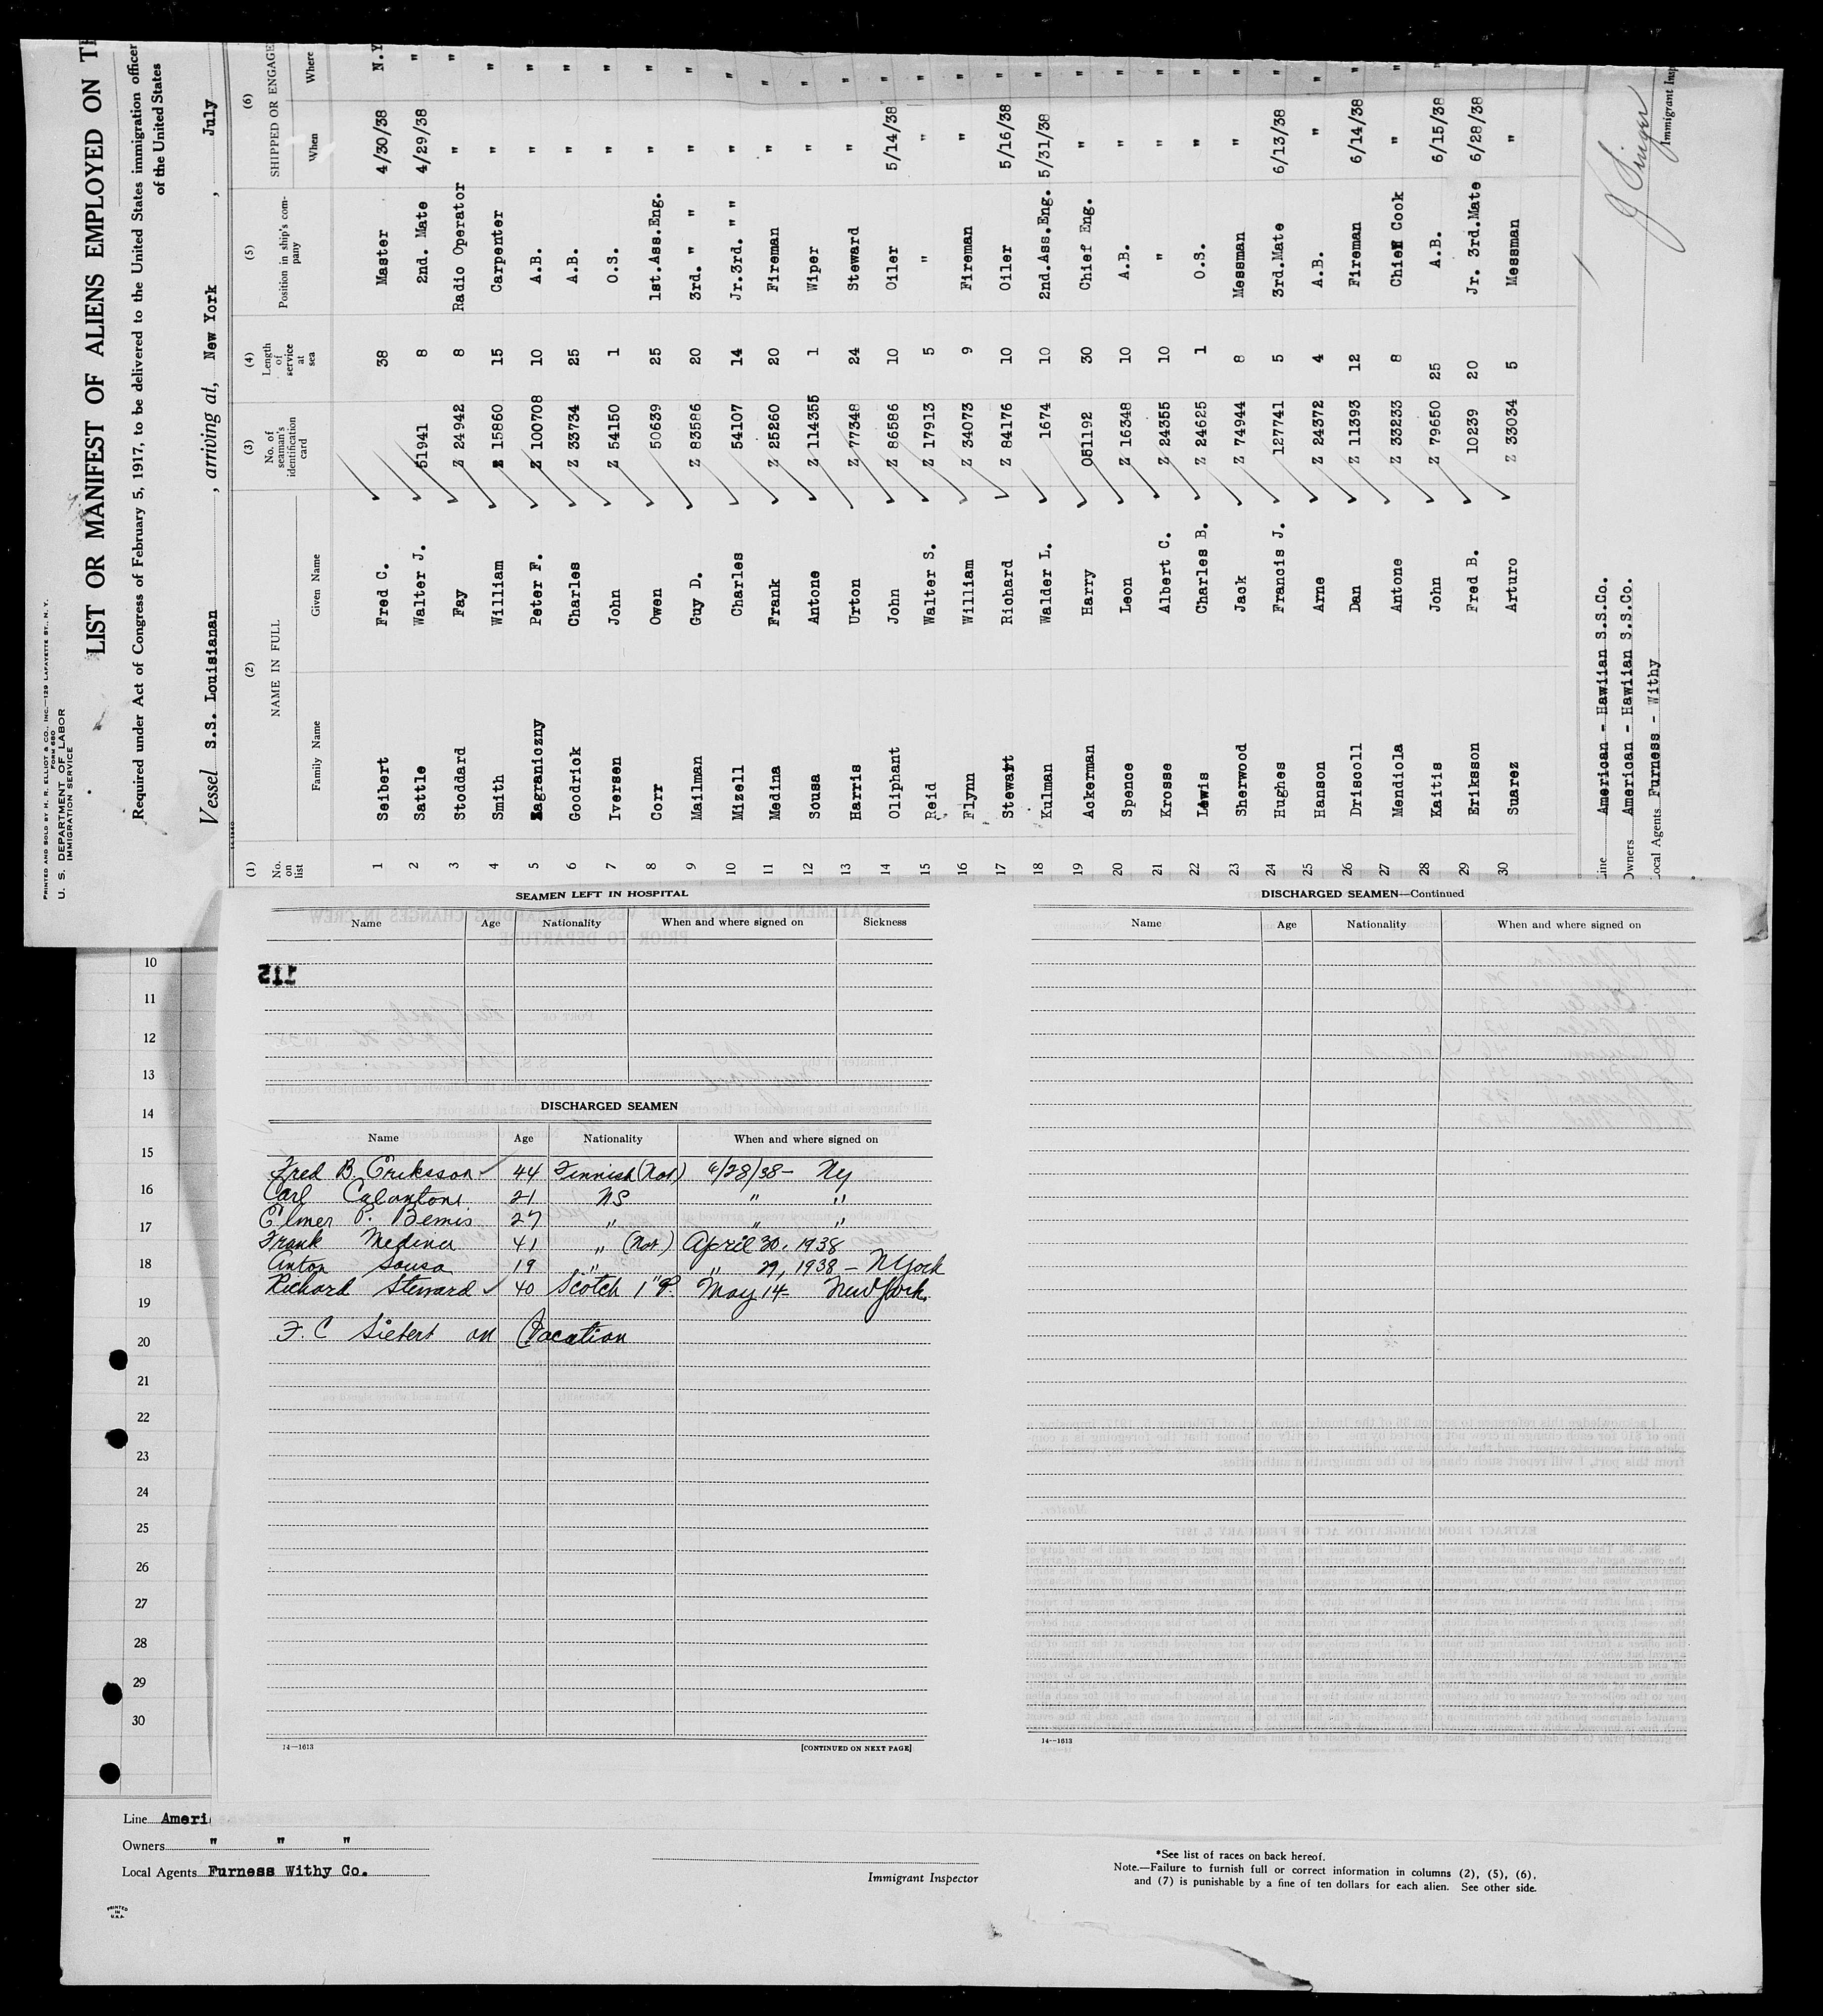 PRINTED AND SOLD BY H. R. ELLIOT & CO., INC.—129 LAFAYETTE ST., N. Y.
FORM 680
U. S. DEPARTMENT OF LABOR
IMMIGRATION SERVICE
LIST OR MANIFEST OF ALIENS EMPLOYED ON
Required under Act of Congress of February 5, 1917, to be delivered to the United States immigration officer
of the United States
Vessel S.S. Louisianan , arriving at, New York , July
(1) (2) (3) (4) (5) (6)
No. on list NAME IN FULL No. of seaman's identification card Length of service at sea Position in ship's company SHIPPED OR ENGAGE
Family Name Given Name When Where
1 Seibert Fred C. 38 Master 4/30/38 N.Y
2 Sattle Walter J. 51941 8 2nd. Mate 4/29/38 "
3 Stoddard Fay Z 24942 8 Radio Operator " "
4 Smith William Z 15860 15 Carpenter " "
5 Zagraniczny Peter F. Z 100708 10 A.B. " "
6 Goodrick Charles Z 33734 25 A.B. " "
7 Iversen John Z 54150 1 O.S. " "
8 Corr Owen 50639 25 1st.Ass.Eng. " "
9 Mailman Guy D. Z 83586 20 3rd. " " " "
10 Mizell Charles 54107 14 Jr.3rd. " " " "
11 Medina Frank Z 25260 20 Fireman " "
12 Sousa Antone Z 114355 1 Wiper " "
13 Harris Urton Z 77348 24 Steward " "
14 Oliphant John Z 86586 10 Oiler 5/14/38 "
15 Reid Walter S. Z 17913 5 " " "
16 Flynn William Z 34073 9 Fireman " "
17 Stewart Richard Z 84176 10 Oiler 5/16/38 "
18 Kulman Walder L. 1674 10 2nd.Ass.Eng. 5/31/38 "
19 Ackerman Harry 051192 30 Chief Eng. " "
20 Spence Leon Z 16348 10 A.B. " "
21 Krosse Albert C. Z 24355 10 " " "
22 Lewis Charles B. Z 24625 1 O.S. " "
23 Sherwood Jack Z 74944 8 Messman " "
24 Hughes Francis J. 127741 5 3rd.Mate 6/13/38 "
25 Hanson Arne Z 24372 4 A.B. " "
26 Driscoll Dan Z 11393 12 Fireman 6/14/38 "
27 Mendiola Antone Z 33233 8 Chief Cook " "
28 Kaitis John Z 79650 25 A.B. 6/15/38 "
29 Eriksson Fred B. 10239 20 Jr. 3rd.Mate 6/28/38 "
30 Suarez Arturo Z 33034 5 Messman " "
Line American - Hawiian S.S.Co.
Owners American - Hawiian S.S.Co.
Local Agents Furness - Withy
J Singer
Immigrant Insp
SEAMEN LEFT IN HOSPITAL
Name Age Nationality When and where signed on Sickness
112
DISCHARGED SEAMEN
Name Age Nationality When and where signed on
Fred B. Eriksson 44 Finnish (Nat) 6/28/38 - Ny
Carl Calantoni 21 US " "
Elmer P. Bemis 27 " " "
Frank Medina 41 " (Nat) April 30, 1938
Anton Sousa 19 " " 29, 1938 - N York
Richard Steward 40 Scotch 1"P. May 14 - New York.
F. C Siebert on Vacation
14—1613 [CONTINUED ON NEXT PAGE]
DISCHARGED SEAMEN—Continued
Name Age Nationality When and where signed on
14—1613
10
11
12
13
14
15
16
17
18
19
20
21
22
23
24
25
26
27
28
29
30
Line Ameri
Owners " " "
Local Agents Furness Withy Co.
Immigrant Inspector
*See list of races on back hereof.
Note.—Failure to furnish full or correct information in columns (2), (5), (6),
and (7) is punishable by a fine of ten dollars for each alien. See other side.
PRINTED
IN
U.S.A.